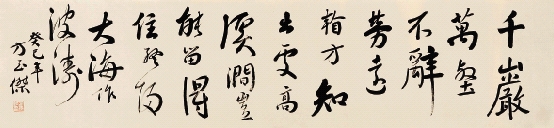 千巖
萬壑
不辭
勞遠
看方知
出處高
溪澗豈
能留得
住終歸
大海作
波濤
癸巳年
玉傑